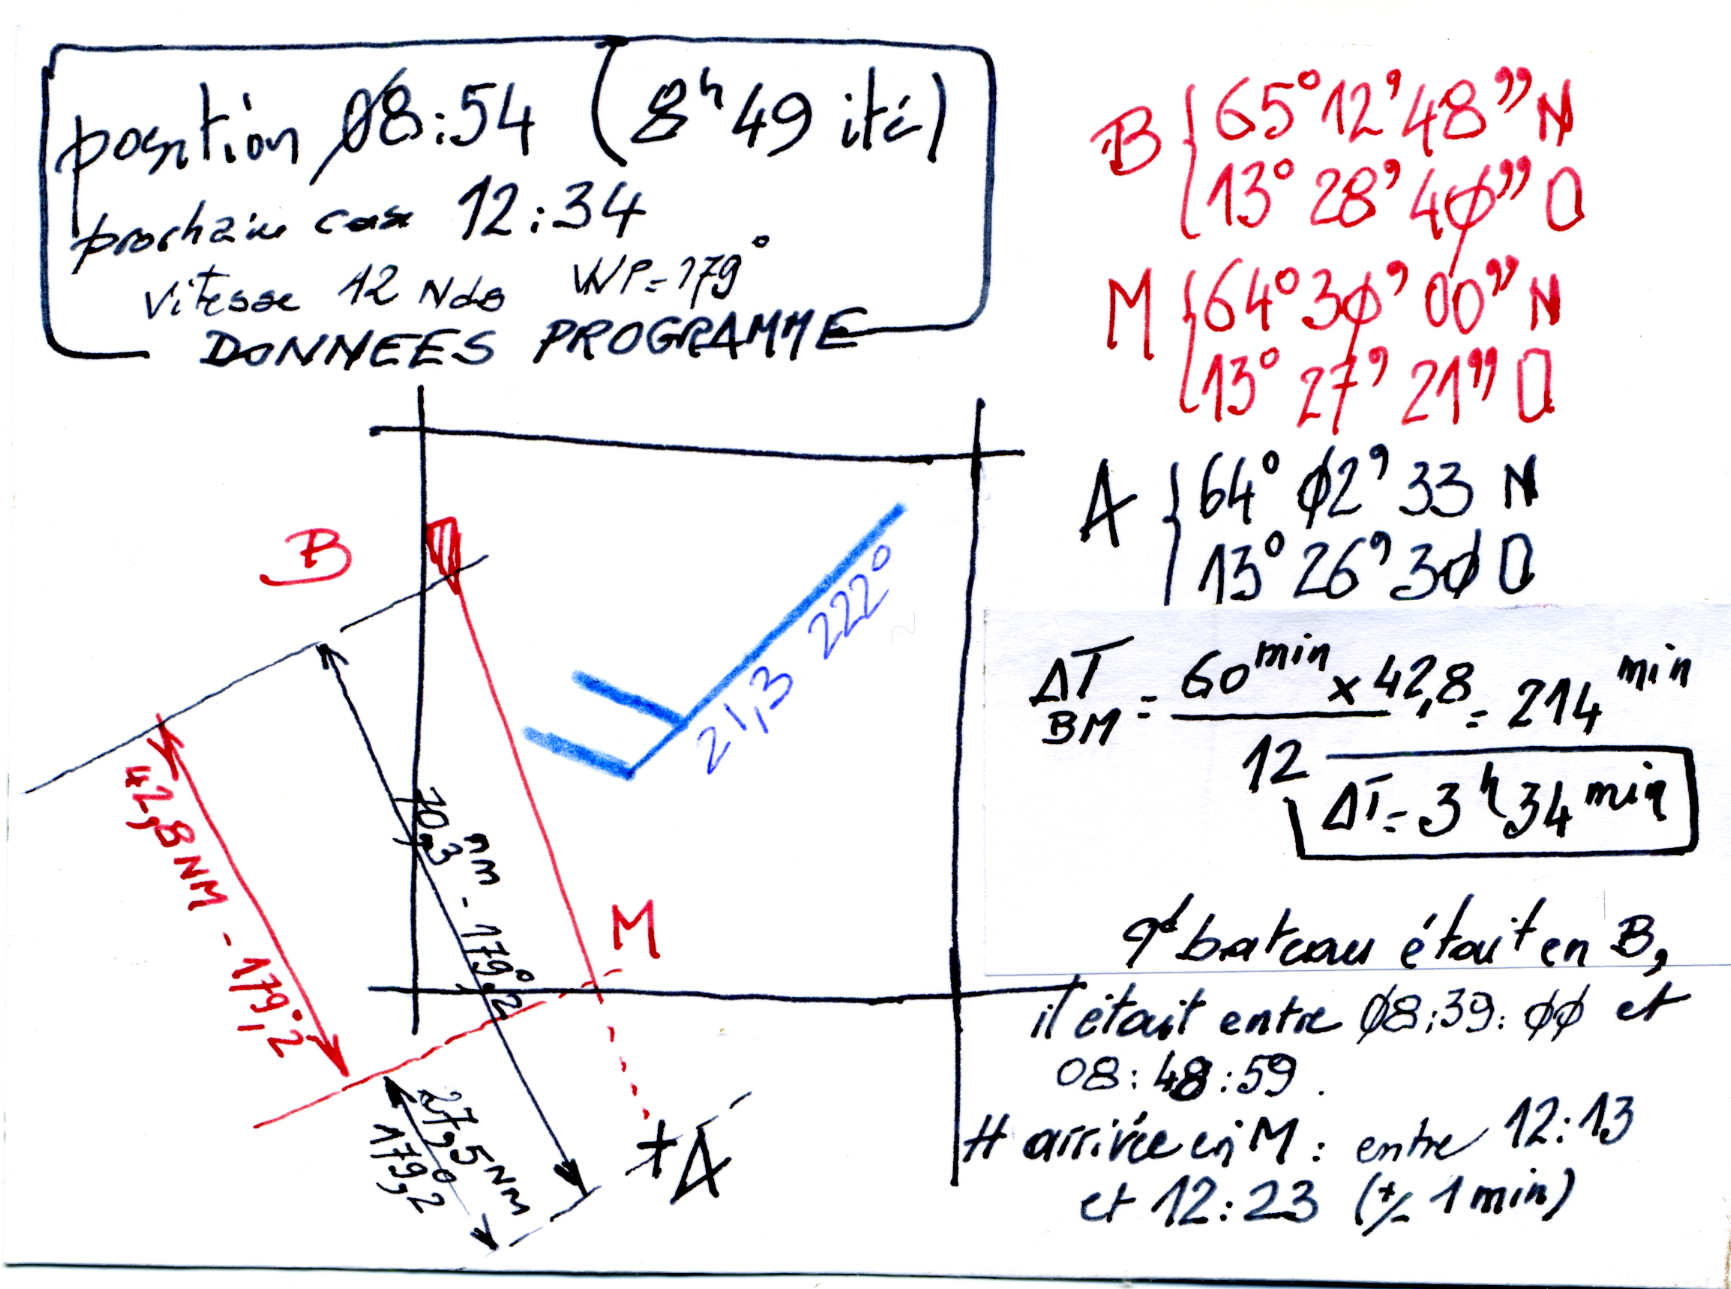 position 08:54 (8h49 ité)
prochaine case 12:34
Vitesse 12 Nds WP=179°
DONNEES PROGRAMME
B { 65°12'48" N
13° 28' 40" O
M { 64°30' 00" N
13° 27' 21" O
A { 64° 02' 33 N
13° 26' 30 O
B
21,3 222°
42,8NM - 179,°2
70,3 nm - 179,°2
M
27,5NM
179,°2
+A
ΔT BM = 60min x 42,8 / 12 = 214 min
ΔT= 3h34min
qd bateau était en B,
il était entre 08:39:00 et
08:48:59.
H arrivée en M : entre 12:13
et 12:23 (+/- 1 min)